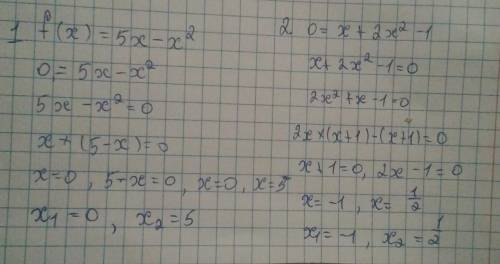 1 f(x) = 5x - x²
0 = 5x - x²
5x - x² = 0
x × (5 - x) = 0
x = 0 , 5 - x = 0 , x = 0 , x = 5
x₁ = 0 , x₂ = 5
2 0 = x + 2x² - 1
x + 2x² - 1 = 0
2x² + x - 1 = 0
2x × (x + 1) - (x + 1) = 0
x + 1 = 0, 2x - 1 = 0
x = -1 , x = 1/2
x₁ = -1 , x₂ = 1/2